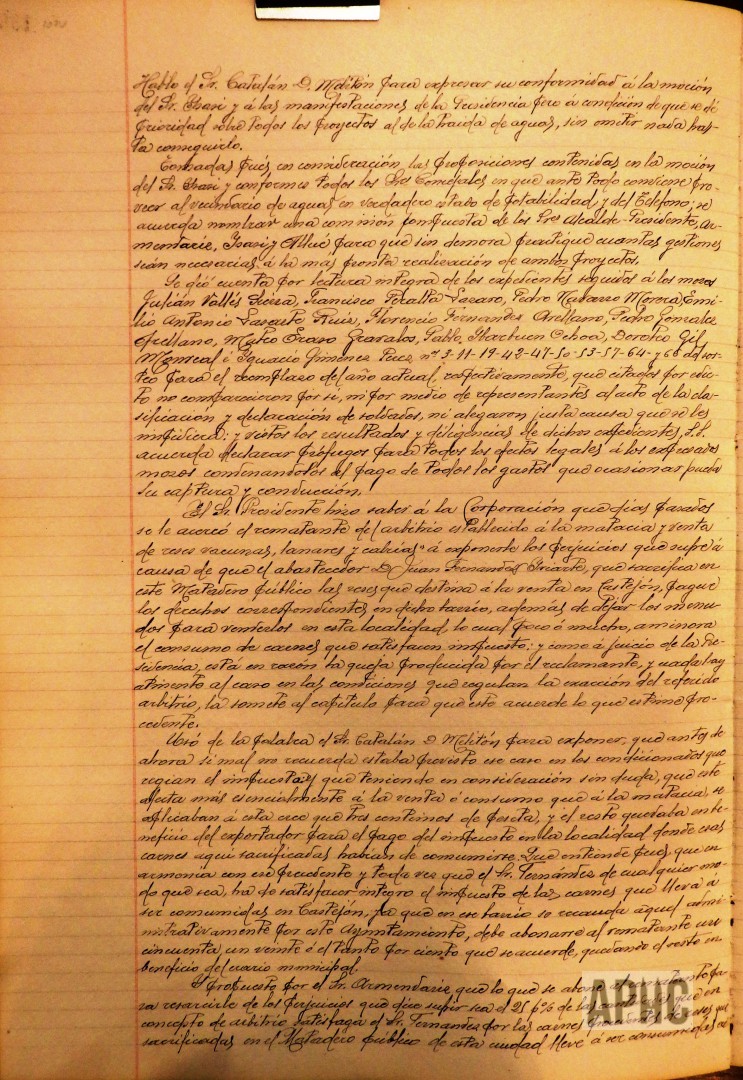 Habló el Sr. Catalán D. Melitón para expresar su conformidad á la moción
del Sr. Isasi y á las manifestaciones de la Presidencia pero á condición de que se dé
prioridad sobre todos los proyectos al de la traida de aguas, sin omitir nada has-
ta conseguirlo.
Tomadas pués en consideración, las proposiciones contenidas en la moción
del Sr. Isasi y conformes todos los Sres Concejales en que ante todo conviene pro-
veer al vecindario de aguas en verdadero estado de potabilidad, y del Teléfono; se
acuerda nombrar una comisión compuesta de los Sres Alcalde-Presidente, Ar-
mendariz, Isasi y Allué para que sin demora practique cuantas gestiones
seán necesarias á la mas pronta realización de ambos proyectos.
Se dió cuenta por lectura integra de los expedientes seguidos á los mozos
Julián Vallés Francisco Peralta Lazaro, Pedro Navarro Monreal, Emi-
lio Antonio Lasarte Ruiz, Florencio Fernandez Arellano, Pedro Gonzalez
Arellano, Mateo Eraso Gravalos, Pablo Ochoa, Doroteo Gil
Monreal é Ignacio Jimenez Perez nº 3-11-19-42-47-50-53-57-64- y 66 del sor-
teo para el reemplazo del año actual, respectivamente, que citados por edic-
to no comparecieron por si, ni por medio de representantes al acto de la cla-
sificación y declaración de soldados, ni alegaron justa causa que se les
impidiera: y vistos los resultados y diligencias de dichos expedientes, S.S.
acuerda declarar prófugos para todos los efectos legales á los expresados
mozos condenandolos al pago de todos los gastos que ocasionar pueda
su captura y conducción.
El Sr. Presidente hizo saber á la Corporación que dias pasados
se le acercó el rematante del arbitrio establecido á la matacia y venta
de reses vacunas, lanares y cabrias" á exponerle los perjuicios que sufre á
causa de que el abastecedor D. Juan Fernandez Iriarte, que sacrifica en
este Matadero público las reses que destina á la venta en Castejón, pague
los derechos correspondientes en dicho barrio, además de dejar los menu-
dos para venderlos en esta localidad, lo cual poco ó mucho, aminora
el consumo de carnes que satisfacen impuesto: y como á juicio de la Pre-
sidencia, está en razón la queja producida por el reclamante, y nada hay
atinente al caso en las condiciones que regulan la exacción del referido
arbitrio, la somete al capitulo para que este acuerde lo que estime pro-
cedente.
Usó de la palabra el Sr. Catalán D. Melitón para exponer, que antes de
ahora si mal no recuerda estaba previsto ese caso en los condicionados que
regian el impuesto: y que teniendo en consideración sin duda, que este
afecta más esencialmente á la venta ó consumo que á la matacia, se
aplicaban á esta cree que tres centimos de peseta, y el resto quedaba en be-
neficio del exportador para el pago del impuesto en la localidad donde esas
carnes aqui sacrificadas habian de consumirse. Que entiende pues, que en
armonia con ese precedente y toda vez que el Sr. Fernández de cualquier mo-
do que sea, ha de satisfacer integro el impuesto de las carnes que lleva á
ser consumidas en Castejón, ya que en ese barrio se recauda aquel admi-
nistrativamente por este Ayuntamiento, debe abonarse al rematante un
cincuenta, un veinte ó el tanto por ciento que se acuerde, quedando el resto en
beneficio del erario municipal.
Y propuesto por el Sr. Armendariz que lo que se abone al rematante pa-
ra resarcirle de los perjuicios que dice sufrir sea el 25 p% de las cantidades que en
concepto de arbitrio satisfaga el Sr. Fernandez por las carnes procedentes de reses que
sacrificadas en el Matadero público de esta ciudad lleve á ser consumidas en
APHC